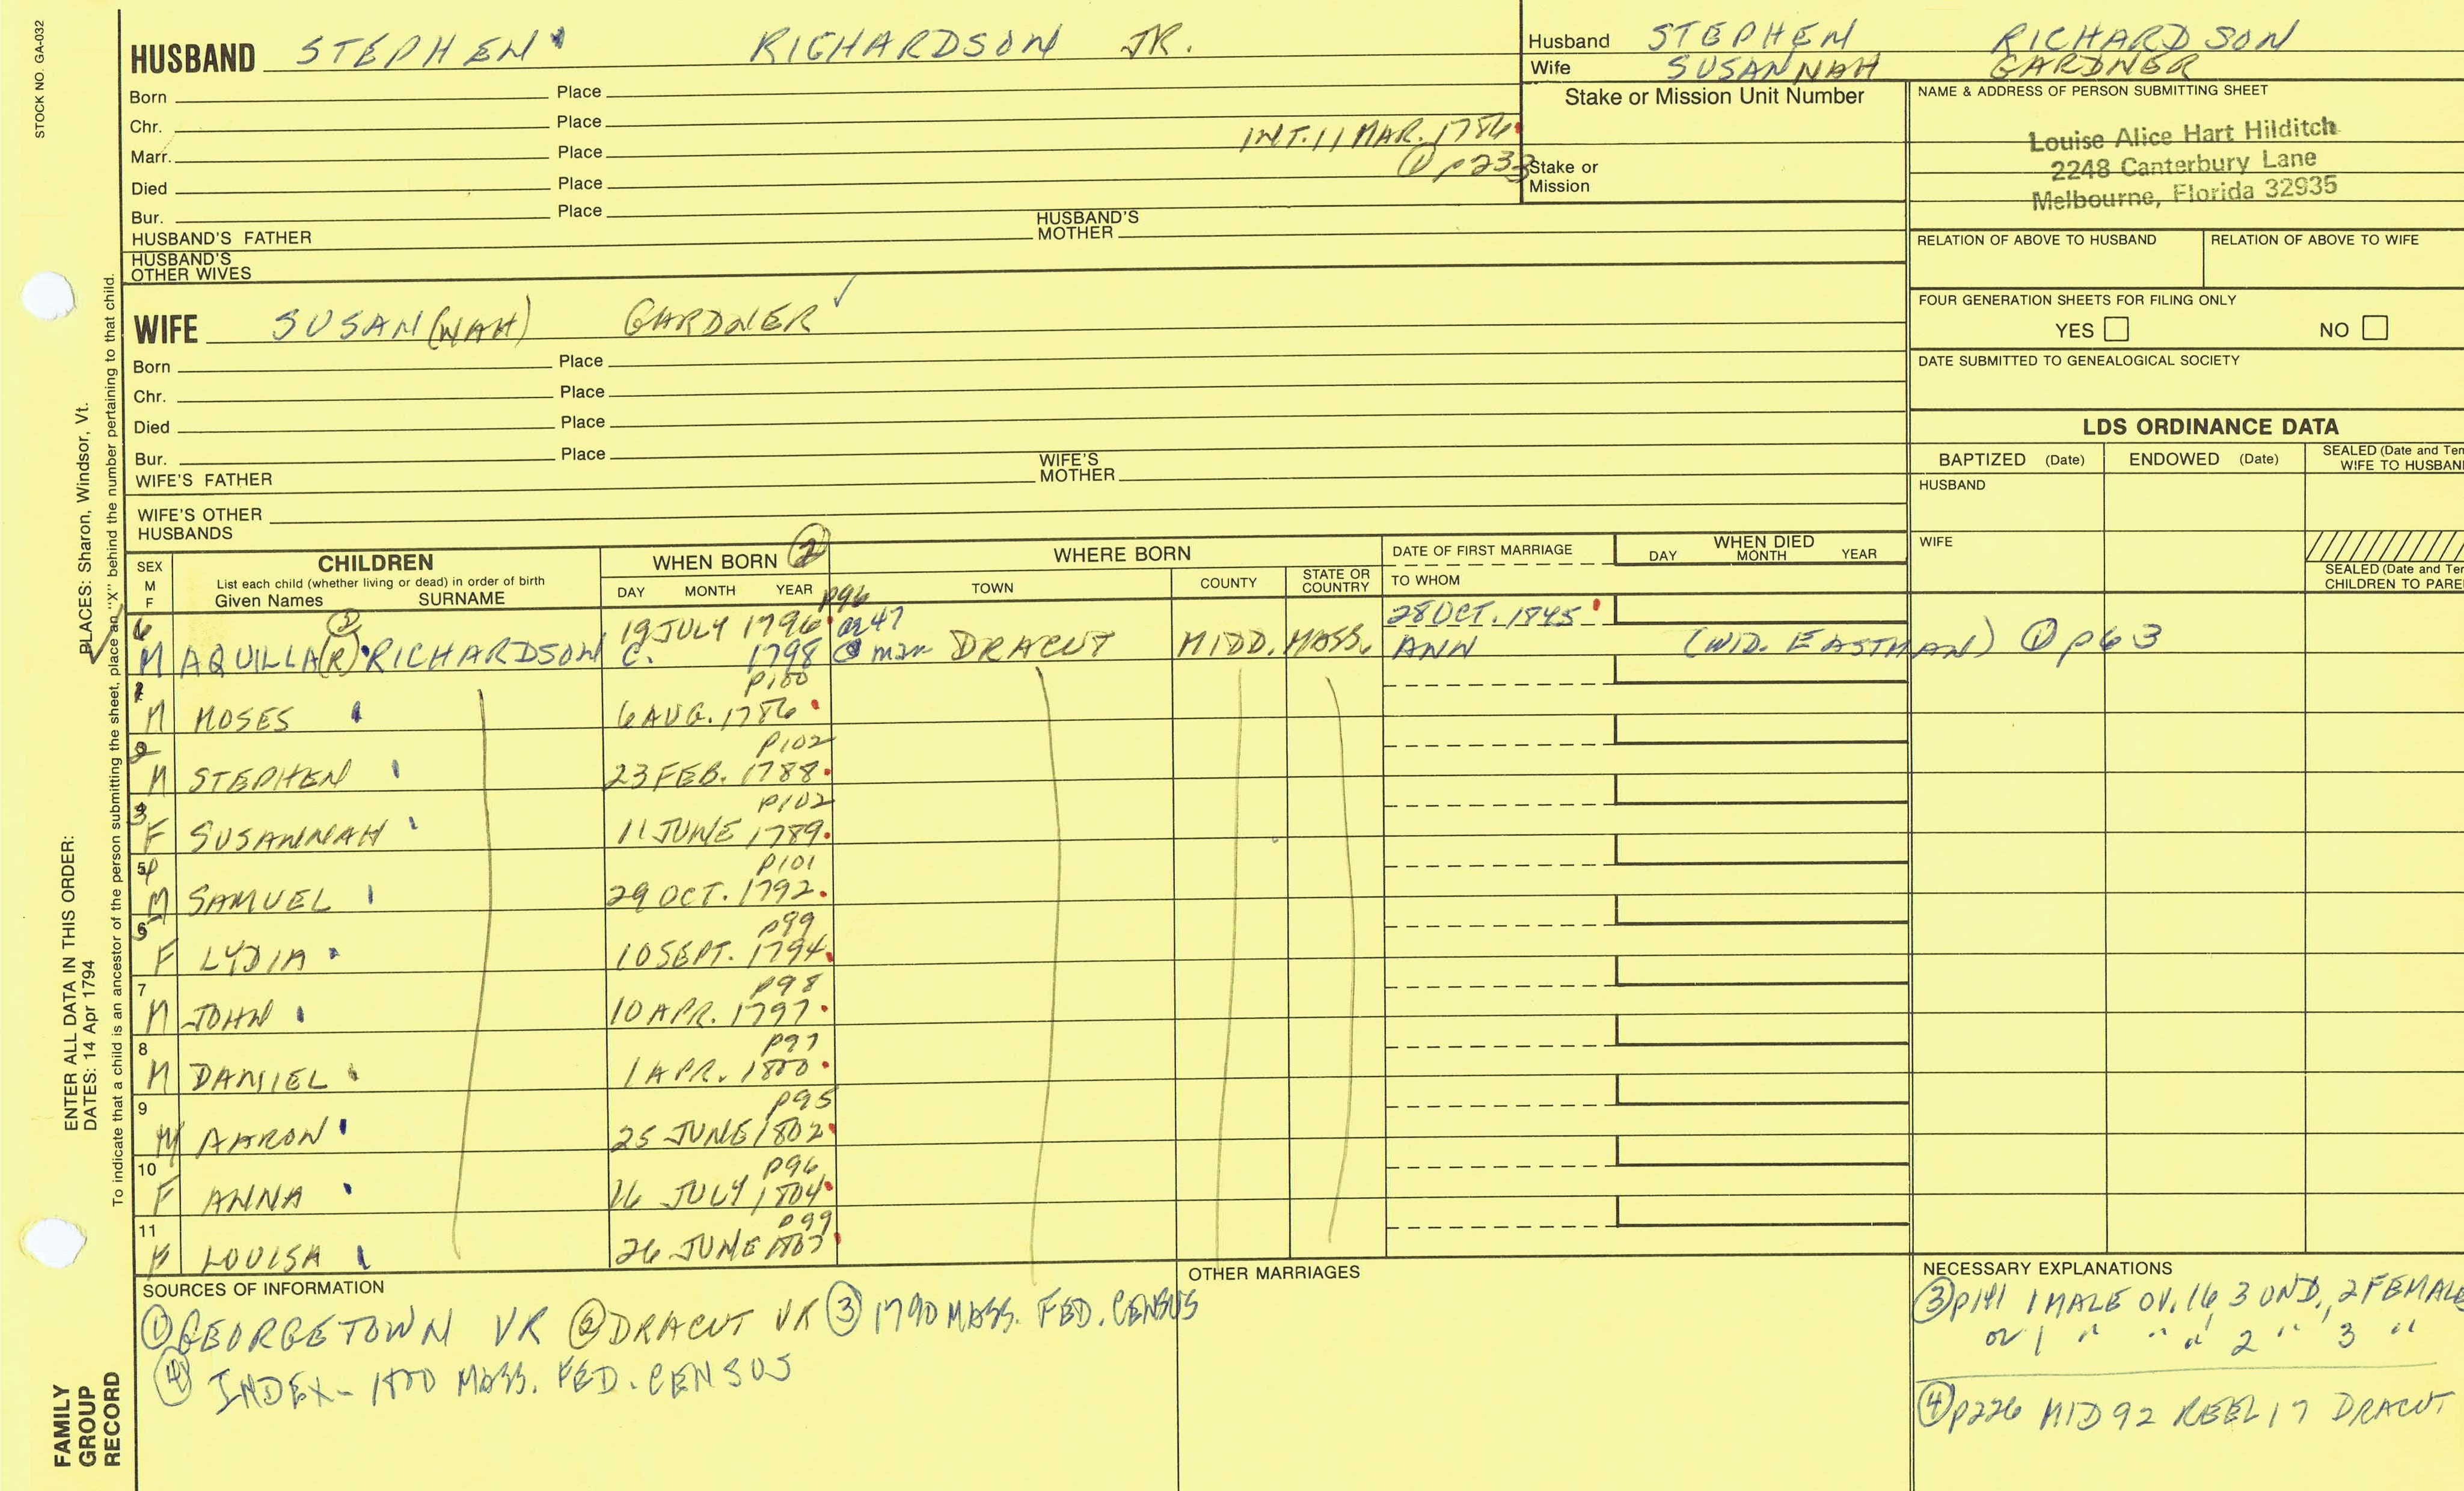 STOCK NO. GA-032
HUSBAND STEPHEN RICHARDSON JR.
Born Place
Chr. Place
INT. 11 MAR. 1786
Marr. Place
① p233
Died Place
Bur. Place
HUSBAND'S FATHER HUSBAND'S MOTHER
HUSBAND'S OTHER WIVES
Husband STEPHEN RICHARDSON
Wife SUSANNAH GARDNER
Stake or Mission Unit Number
Stake or
Mission
NAME & ADDRESS OF PERSON SUBMITTING SHEET
Louise Alice Hart Hilditch
2248 Canterbury Lane
Melbourne, Florida 32935
RELATION OF ABOVE TO HUSBAND RELATION OF ABOVE TO WIFE
FOUR GENERATION SHEETS FOR FILING ONLY
YES NO
DATE SUBMITTED TO GENEALOGICAL SOCIETY
WIFE SUSAN(NAH) GARDNER
Born Place
Chr. Place
Died Place
Bur. Place
WIFE'S FATHER WIFE'S MOTHER
WIFE'S OTHER
HUSBANDS
LDS ORDINANCE DATA
BAPTIZED (Date) ENDOWED (Date) SEALED (Date and Tem
WIFE TO HUSBAN
HUSBAND
WIFE
SEALED (Date and Tem
CHILDREN TO PARE
SEX
M
F
CHILDREN
List each child (whether living or dead) in order of birth
Given Names SURNAME
WHEN BORN ②
DAY MONTH YEAR
WHERE BORN
TOWN COUNTY STATE OR COUNTRY
DATE OF FIRST MARRIAGE
TO WHOM
WHEN DIED
DAY MONTH YEAR
p96
6 19 JULY 1796 28 OCT. 1845
M AQUILLA(R) RICHARDSON C. 1798 DRACUT MIDD. MASS. ANN (WID. EASTMAN) ① p63
p100
M MOSES 6 AUG. 1786
p102
M STEPHEN 23 FEB. 1788
p102
3 F SUSANNAH 11 JUNE 1789
p101
M SAMUEL 29 OCT. 1792
p99
F LYDIA 10 SEPT. 1794
p98
7 M JOHN 10 APR. 1797
p97
8 M DANIEL 1 APR. 1800
p95
9 M AARON 25 JUNE 1802
p96
10 F ANNA 16 JULY 1804
p99
11 LOUISA 26 JUNE 1807
SOURCES OF INFORMATION
① GEORGETOWN VR ② DRACUT VR ③ 1790 MASS. FED. CENSUS
④ INDEX - 1800 MASS. FED. CENSUS
OTHER MARRIAGES
NECESSARY EXPLANATIONS
③ p141 1 MALE OV. 16 3 UND., 2 FEMALE
or 1 " " " 2 " 3 "
④ p226 MID 92 REEL 17 DRACUT
PLACES: Sharon, Windsor, Vt.
ENTER ALL DATA IN THIS ORDER:
DATES: 14 Apr 1794
To indicate that a child is an ancestor of the person submitting the sheet, place an "X" behind the number pertaining to that child.
FAMILY
GROUP
RECORD